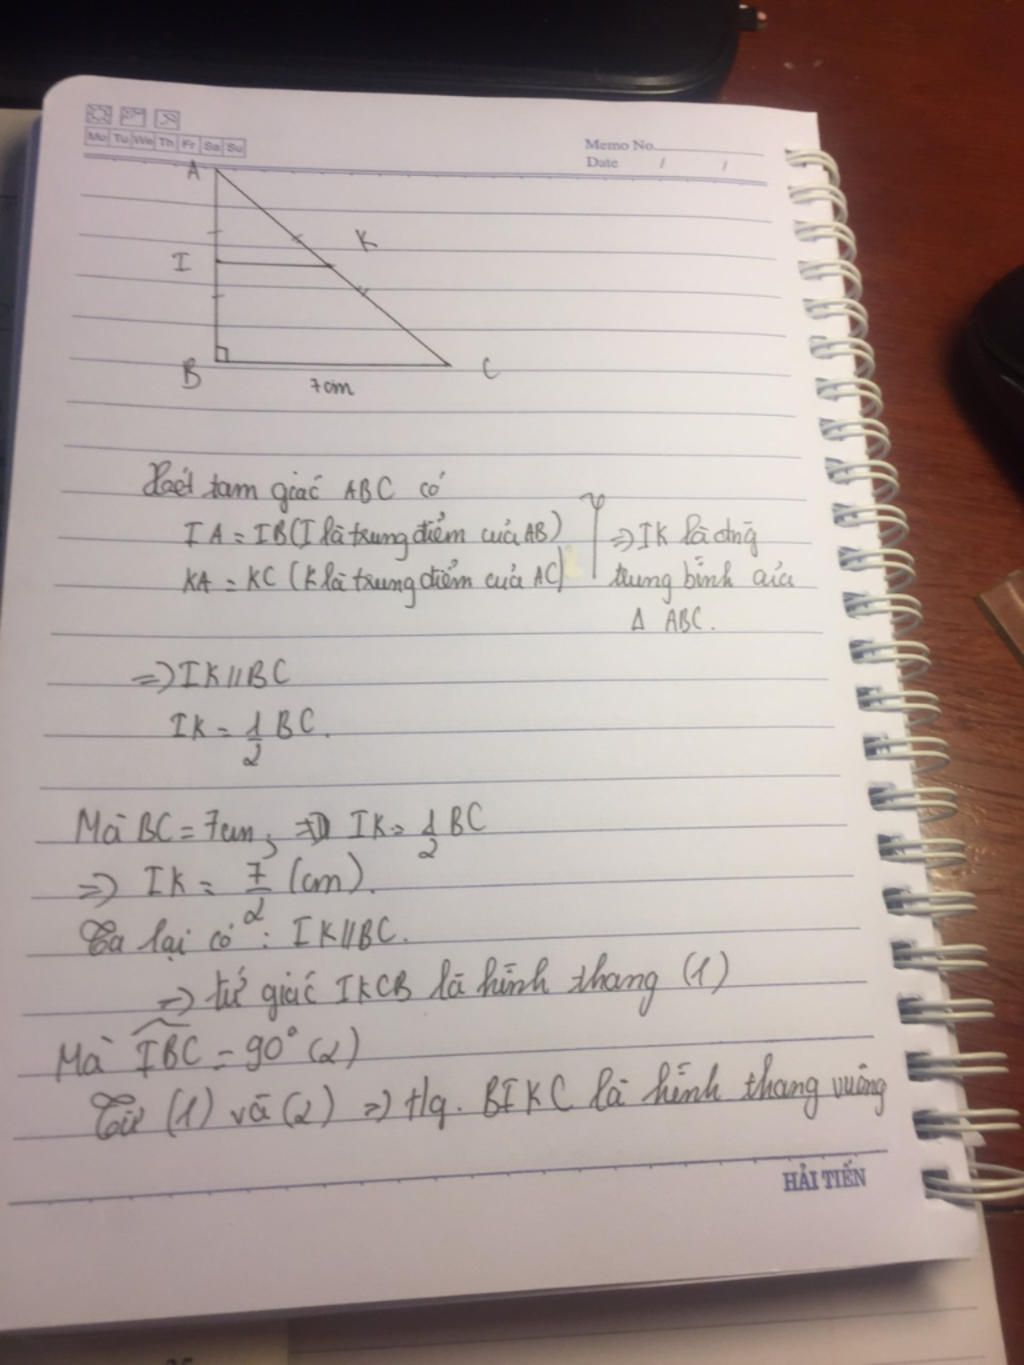 Mo Tu We Th Fr Sa Su
Memo No.
Date / /
A
K
I
B
C
7cm
Xét tam giác ABC có
IA = IB (I là trung điểm của AB)
KA = KC (K là trung điểm của AC)
=> IK là đng
trung bình của
Δ ABC.
=> IK // BC
IK = 1/2 BC.
Mà BC = 7cm, => IK = 1/2 BC
=> IK = 7/2 (cm).
Ta lại có : IK // BC.
=> tứ giác IKCB là hình thang (1)
Mà IBC = 90° (2)
Từ (1) và (2) => tg. BIKC là hình thang vuông
HẢI TIẾN